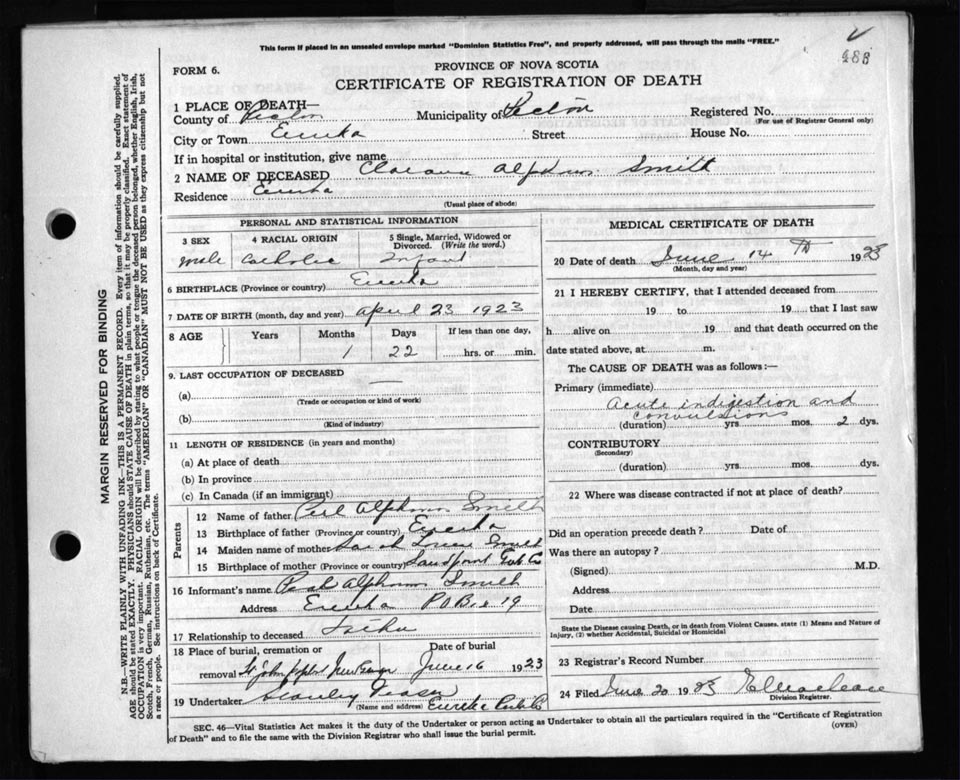 This form if placed in an unsealed envelope marked "Dominion Statistics Free", and properly addressed, will pass through the mails "FREE."
488
FORM 6.
PROVINCE OF NOVA SCOTIA
CERTIFICATE OF REGISTRATION OF DEATH
1 PLACE OF DEATH—
County of Pictou Municipality of Pictou Registered No.
(For use of Registrar General only)
City or Town Eureka Street House No.
If in hospital or institution, give name
2 NAME OF DECEASED Clarence Alphonse Smith
Residence Eureka
(Usual place of abode)
PERSONAL AND STATISTICAL INFORMATION
3 SEX 4 RACIAL ORIGIN 5 Single, Married, Widowed or Divorced. (Write the word.)
male Catholic Infant
6 BIRTHPLACE (Province or country) Eureka
7 DATE OF BIRTH (month, day and year) April 23 1923
8 AGE Years Months Days If less than one day,
1 22 hrs. or min.
9. LAST OCCUPATION OF DECEASED
(a) —
(Trade or occupation or kind of work)
(b)
(Kind of industry)
11 LENGTH OF RESIDENCE (in years and months)
(a) At place of death
(b) In province
(c) In Canada (if an immigrant)
Parents
12 Name of father Alphonse Smith
13 Birthplace of father (Province or country) Eureka
14 Maiden name of mother Sarah Smith
15 Birthplace of mother (Province or country) Sandpoint
16 Informant's name Alphonse Smith
Address Eureka P O Box 19
17 Relationship to deceased Father
18 Place of burial, cremation or Date of burial
removal St John June 16 1923
19 Undertaker Stanley Fraser
(Name and address) Eureka
MEDICAL CERTIFICATE OF DEATH
20 Date of death June 14 Th 1923
(Month, day and year)
21 I HEREBY CERTIFY, that I attended deceased from
19 to 19 that I last saw
h alive on 19 and that death occurred on the
date stated above, at m.
The CAUSE OF DEATH was as follows:—
Primary (immediate)
Acute indigestion and
convulsions
(duration) yrs. mos. 2 dys.
CONTRIBUTORY
(Secondary)
(duration) yrs. mos. dys.
22 Where was disease contracted if not at place of death?
Did an operation precede death? Date of
Was there an autopsy?
(Signed) M.D.
Address
Date
State the Disease causing Death, or in death from Violent Causes, state (1) Means and Nature of
Injury, (2) whether Accidental, Suicidal or Homicidal
23 Registrar's Record Number
24 Filed June 20 1923
Division Registrar.
SEC. 46—Vital Statistics Act makes it the duty of the Undertaker or person acting as Undertaker to obtain all the particulars required in the "Certificate of Registration
of Death" and to file the same with the Division Registrar who shall issue the burial permit.
(OVER)
MARGIN RESERVED FOR BINDING
N.B.—WRITE PLAINLY WITH UNFADING INK—THIS IS A PERMANENT RECORD. Every item of information should be carefully supplied.
AGE should be stated EXACTLY. PHYSICIANS should STATE CAUSE OF DEATH in plain terms, so that it may be properly classified. Exact statement of
OCCUPATION is very important. RACIAL ORIGIN will be described by stating to what people or tongue the deceased person belonged, whether English, Irish,
Scotch, French, German, Russian, Ruthenian, etc. The terms "AMERICAN" or "CANADIAN" MUST NOT BE USED as they express citizenship but not
a race or people. See instructions on back of Certificate.